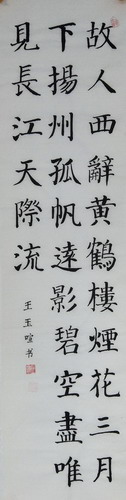 故人西辭黃鶴樓煙花三月
下揚州孤帆遠影碧空盡唯
見長江天際流
王玉喧书